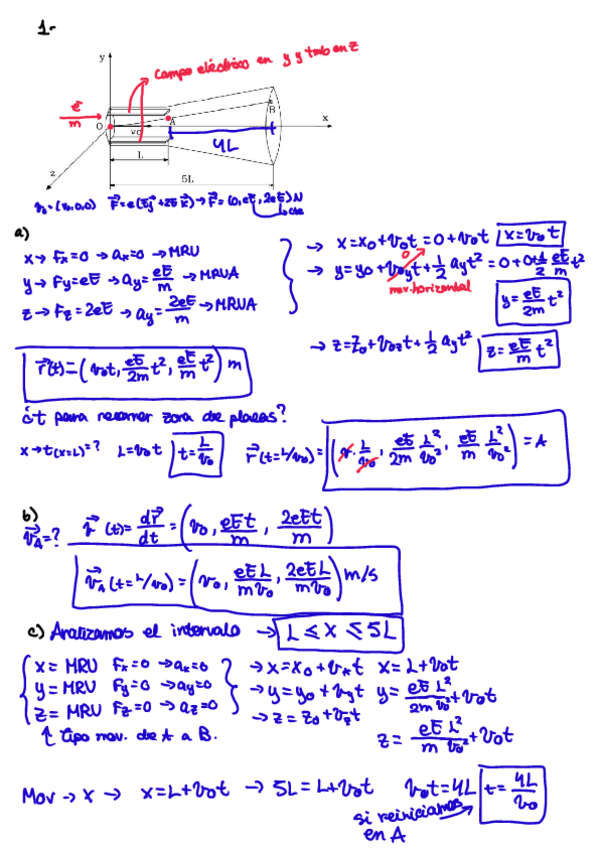 1-
y
Campo eléctrico en y y tmb en z
e
m
O
v₀
A
B
x
4L
L
z
5L
v₀=(v₀,0,0) F⃗=e(Ej⃗+2Ek⃗)→F⃗=(0,eE,2eE)N
cte
a)
x→ Fx=0 →ax=0 →MRU
y→ Fy=eE →ay=eE/m →MRUA
z→ Fz=2eE →ay=2eE/m →MRUA
→ x=x₀+v₀t=0+v₀t x=v₀t
→ y=y₀+v₀yt+1/2 ayt²=0+0t+1/2 eE/m t²
0
mov. horizontal
y=eE/2m t²
→ z=z₀+v₀zt+1/2 ayt² z=eE/m t²
r⃗(t)=(v₀t, eE/2m t², eE/m t²) m
¿t para recorrer zona de placas?
x→t(x=L)=? L=v₀t t=L/v₀ r⃗(t=L/v₀)=(v₀ L/v₀, eE/2m L²/v₀², eE/m L²/v₀²)=A
b)
v⃗A=? v⃗(t)=dr⃗/dt=(v₀, eEt/m, 2eEt/m)
v⃗A(t=L/v₀)=(v₀, eEL/mv₀, 2eEL/mv₀) m/s
c) Analizamos el intervalo → L≤x≤5L
x= MRU Fx=0 →ax=0 →x=x₀+vxt x=L+v₀t
y= MRU Fy=0 →ay=0 →y=y₀+vyt y=eE L²/2m v₀²+v₀t
z= MRU Fz=0 →az=0 →z=z₀+vzt
↑ tipo mov. de A a B.
z=eE L²/m v₀²+v₀t
Mov → x → x=L+v₀t → 5L=L+v₀t v₀t=4L t=4L/v₀
si reiniciamos
en A